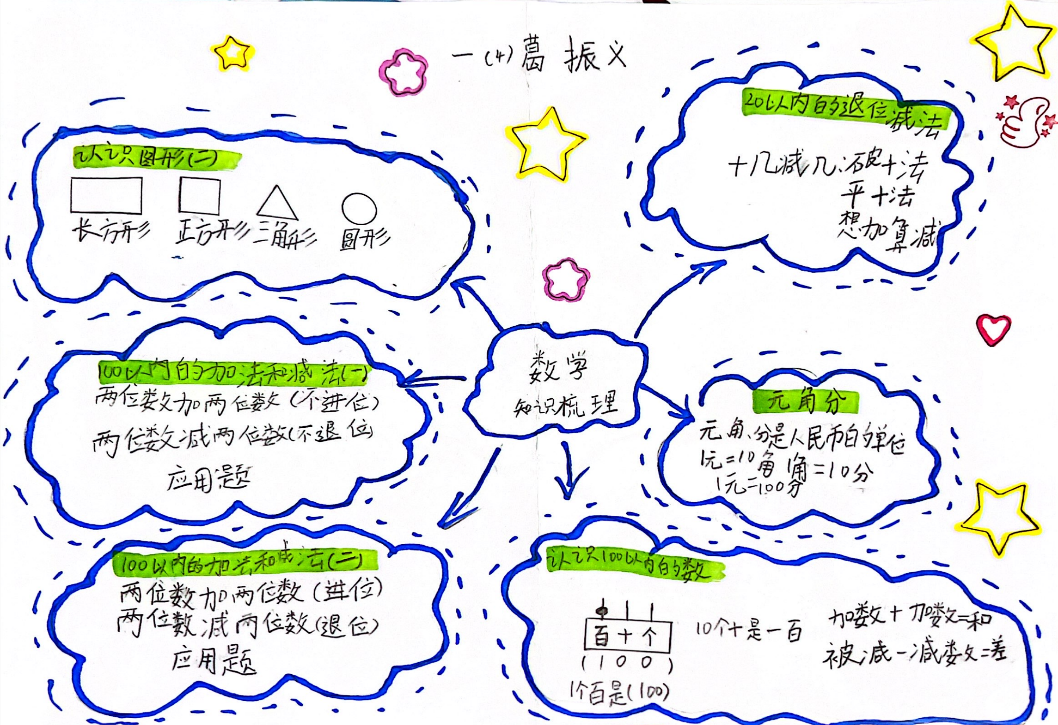 一(4)葛振义
认识图形(二)
长方形 正方形 三角形 圆形
20以内的退位减法
十几减几、破十法
平十法
想加算减
数学
知识梳理
100以内的加法和减法(一)
两位数加两位数(不进位)
两位数减两位数(不退位)
应用题
元角分
元、角、分是人民币的单位
1元=10角 1角=10分
1元=100分
100以内的加法和减法(二)
两位数加两位数(进位)
两位数减两位数(退位)
应用题
认识100以内的数
百十个
(100)
1个百是(100)
10个十是一百
加数+加数=和
被减-减数=差